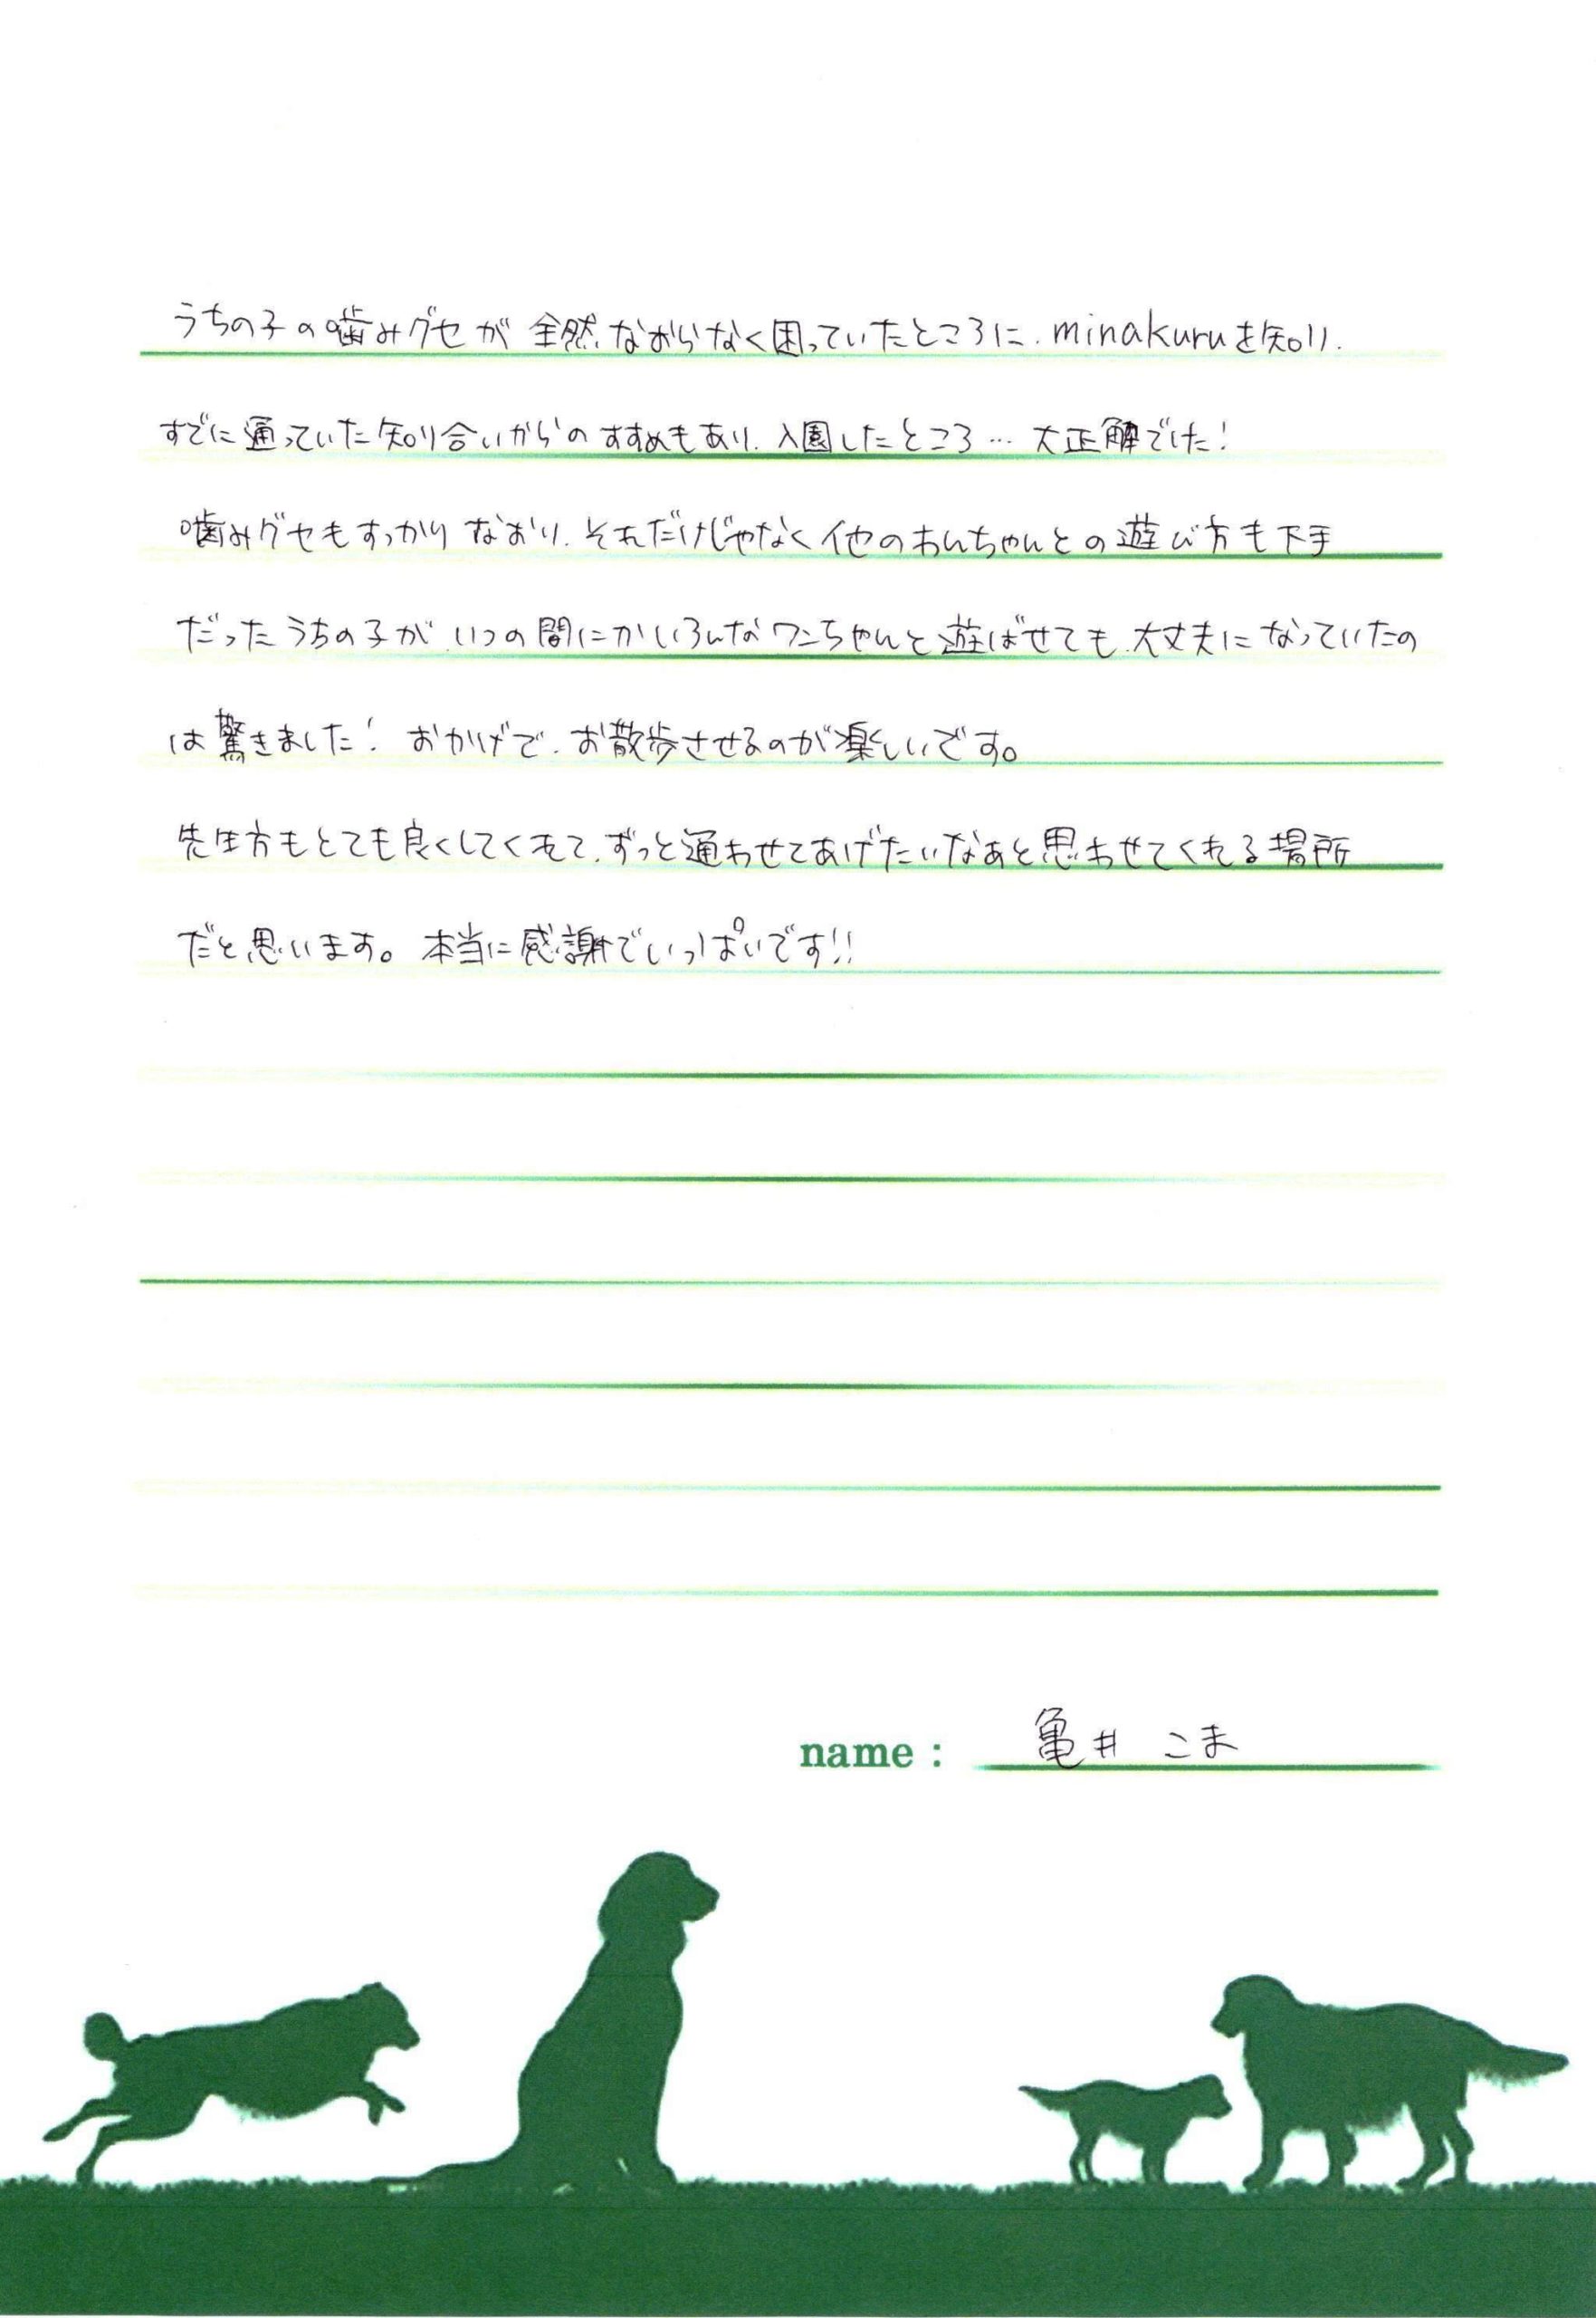 うちの子の噛みグセが全然なおらなく困っていたところに、minakuruを知り、
すでに通っていた知り合いからのすすめもあり、入園したところ…大正解でした！
噛みグセもすっかりなおり、それだけじゃなく他のわんちゃんとの遊び方も下手
だったうちの子が、いつの間にかいろんなワンちゃんと遊ばせても、大丈夫になっていたの
は驚きました！おかげで、お散歩させるのが楽しいです。
先生方もとても良くしてくれて、ずっと通わせてあげたいなあと思わせてくれる場所
だと思います。本当に感謝でいっぱいです!!
name : 亀井 こま